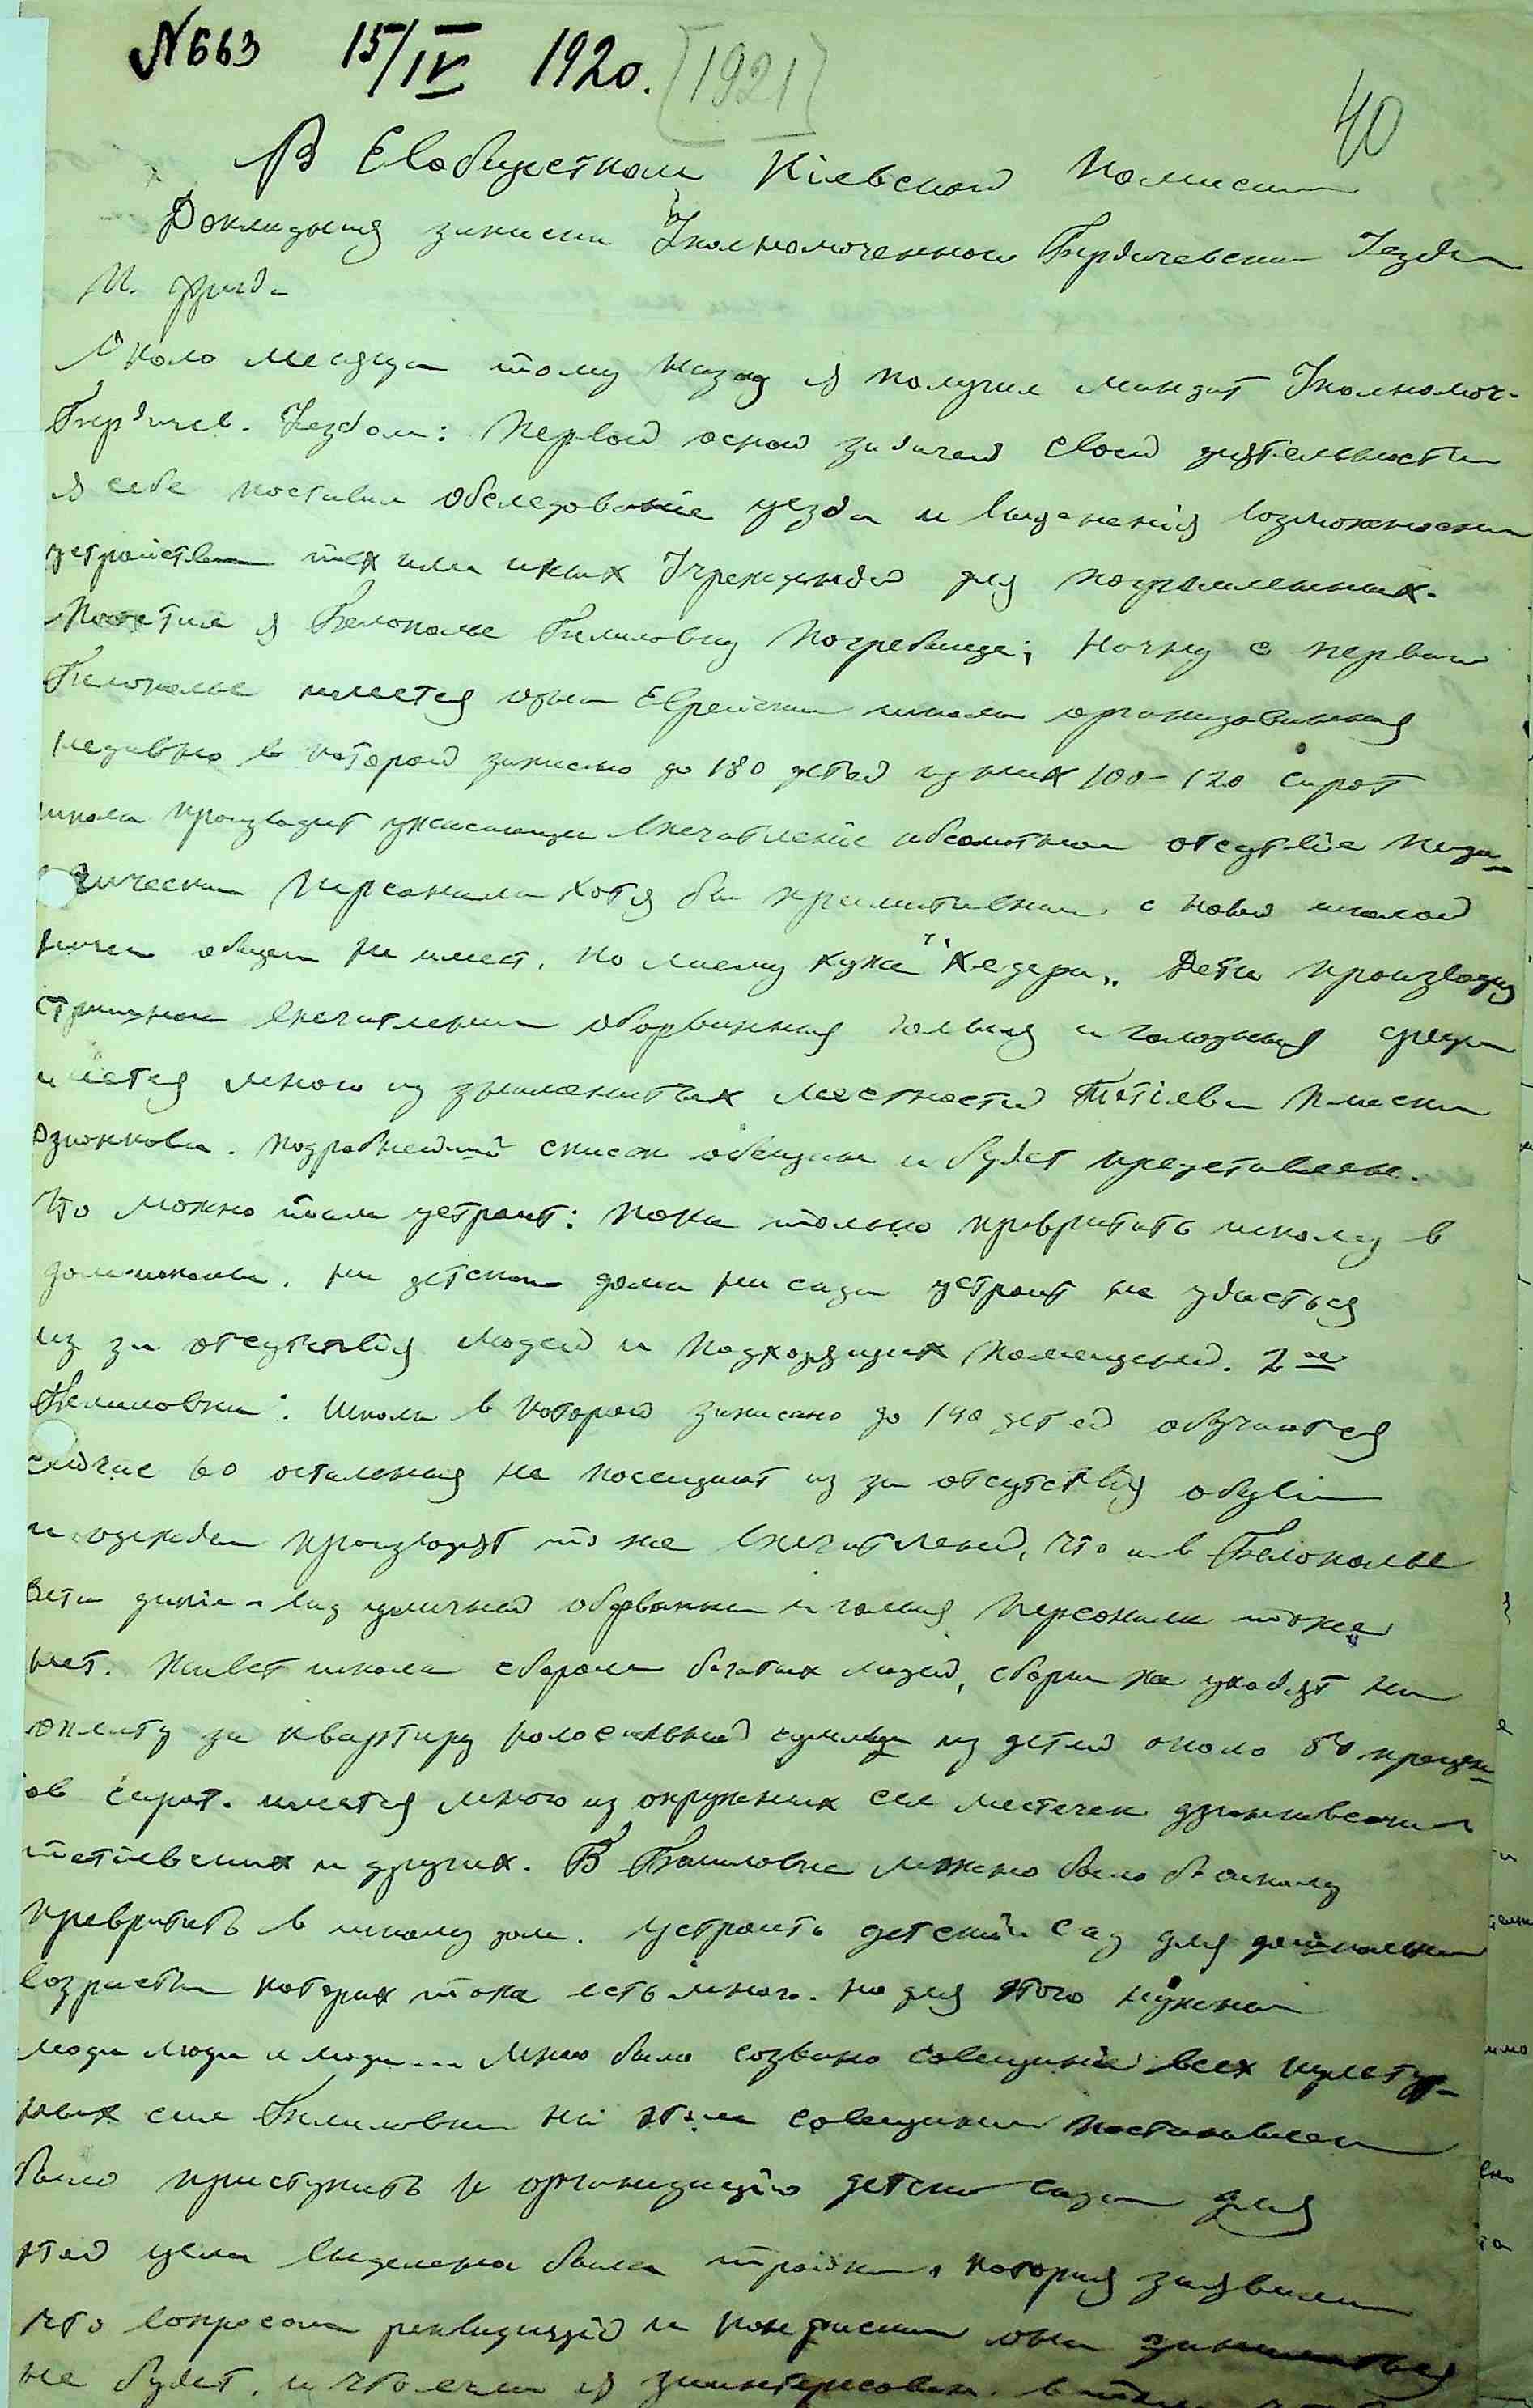 №663 15/IV 1920. [1921]
40
В Евобщестком Кіевской Комиссии
Докладная записка Уполномоченного Бердичевским Уездом
М. Фрид.
Около месяца тому назад я получил мандат Уполномоч.
Бердичев. Уездом: Первой основ задачей своей деятельности
я себе поставил обследованіе уезда и выяснения возможности
устройства тех или иных Учреждений для погромленных.
Посетил я Белополье Билиловку Погребище; Начну с первого
Белополье имеется одна Еврейская школа организованная
недавно в которой записано до 180 детей из них 100-120 сирот
школа производит ужасающее впечатленіе абсолютное отсутвіе педа-
гогическаго персонала хотя бы примитивнаго, с новой школой
ничего общего не имеет. По моему хуже "Хедера". Дети производят
страшное впечатление оборванныя голыя и голодныя среди
имется много из знаменитых местностей Тетіева Плиски
Дзюнкова. Подробнейший список обещан и будет представлен.
Что можно там устроит: пока только превратить школу в
дом-школы. ни детского дома ни сада устроит не удасться
из за отсутствія людей и подходящих помещений. 2ое
Билиловка: Школа в которой записано до 140 детей обучается
сейчас 60 остальныя не посещают из за отсутствія обуви
и одежды производят то же впечатлений, что и в Белополье
Дети дикіе вид уличный оборванныя и голыя Персонала тоже
нет. Живет школа сбором богатых людей, сборы же уходят на
оплату за квартиру колосальной суммы из детей около 80 процен-
ов сирот. имеется много из окружных сел местечек дзюнковских
тетіевских и других. В Билиловке можно было б школу
превратить в школу дом. Устроить детскій сад для дошкольн
возраста которых тоже есть много. но для этого нужны
люди люди и люди... Мною было созвано совещаніе всех культур-
ных сил Билиловки на этом совещании постановлен
было приступить к организацію детского сада для
этой цели выделена была тройка, которая заявила
что вопросом реквизиций и конфискаций она заниматься
не будет, и что если я заинтересован